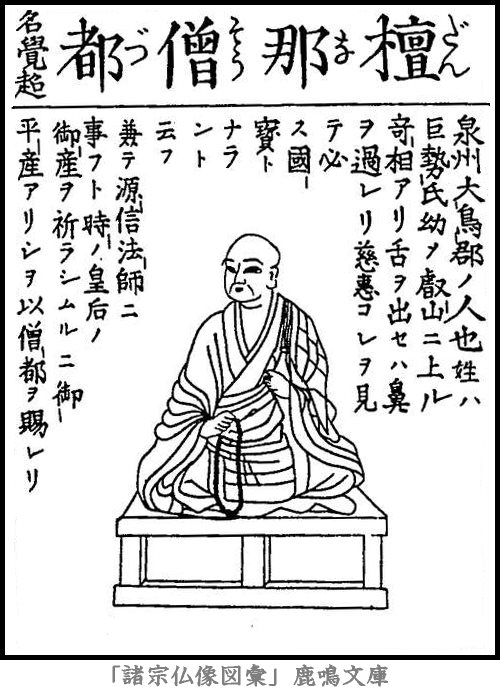 檀那僧都
だんなそうづ
名覺超
泉州大鳥郡ノ人也姓ハ
巨勢氏幼ノ叡山ニ上ル
竒相アリ舌ヲ出セハ鼻
ヲ過レリ慈惠コレヲ見
テ必
ス國ノ
寳ト
ナラ
ント
云フ
兼テ源信法師ニ
事フト時ノ皇后ノ
御産ヲ祈ラシムルニ御
平産アリシヲ以僧都ヲ賜レリ
「諸宗仏像図彙」鹿鳴文庫